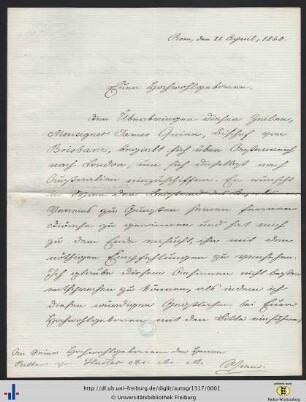 Rom, den 21 April, 1860.
Euer Hochwohlgeboren.
den Überbringer dieser Zeilen,
Monsignor James Quinn, Bischof von
Brisbane, begiebt sich über Oesterreich
nach London, um sich daselbst nach
Australien einzuschiffen. Er wünscht
in Wien den Beistand des
Vereins zu Gunsten seiner fernen
Diöcese zu gewinnen und hat mich
zu dem Ende ersucht, ihn mit den
nöthigen Empfehlungen zu versehen.
Ich glaube diesem Ansinnen nicht besser
entsprechen zu können, als indem ich
diesen würdigen Geistlichen bei Euer
Hochwohlgeboren mit der Bitte einführe,
An Seine Hochwohlgeboren den Herrn
Ritter von
http://dl.ub.uni-freiburg.de/diglit/autogr1317/0001
© Universitätsbibliothek Freiburg